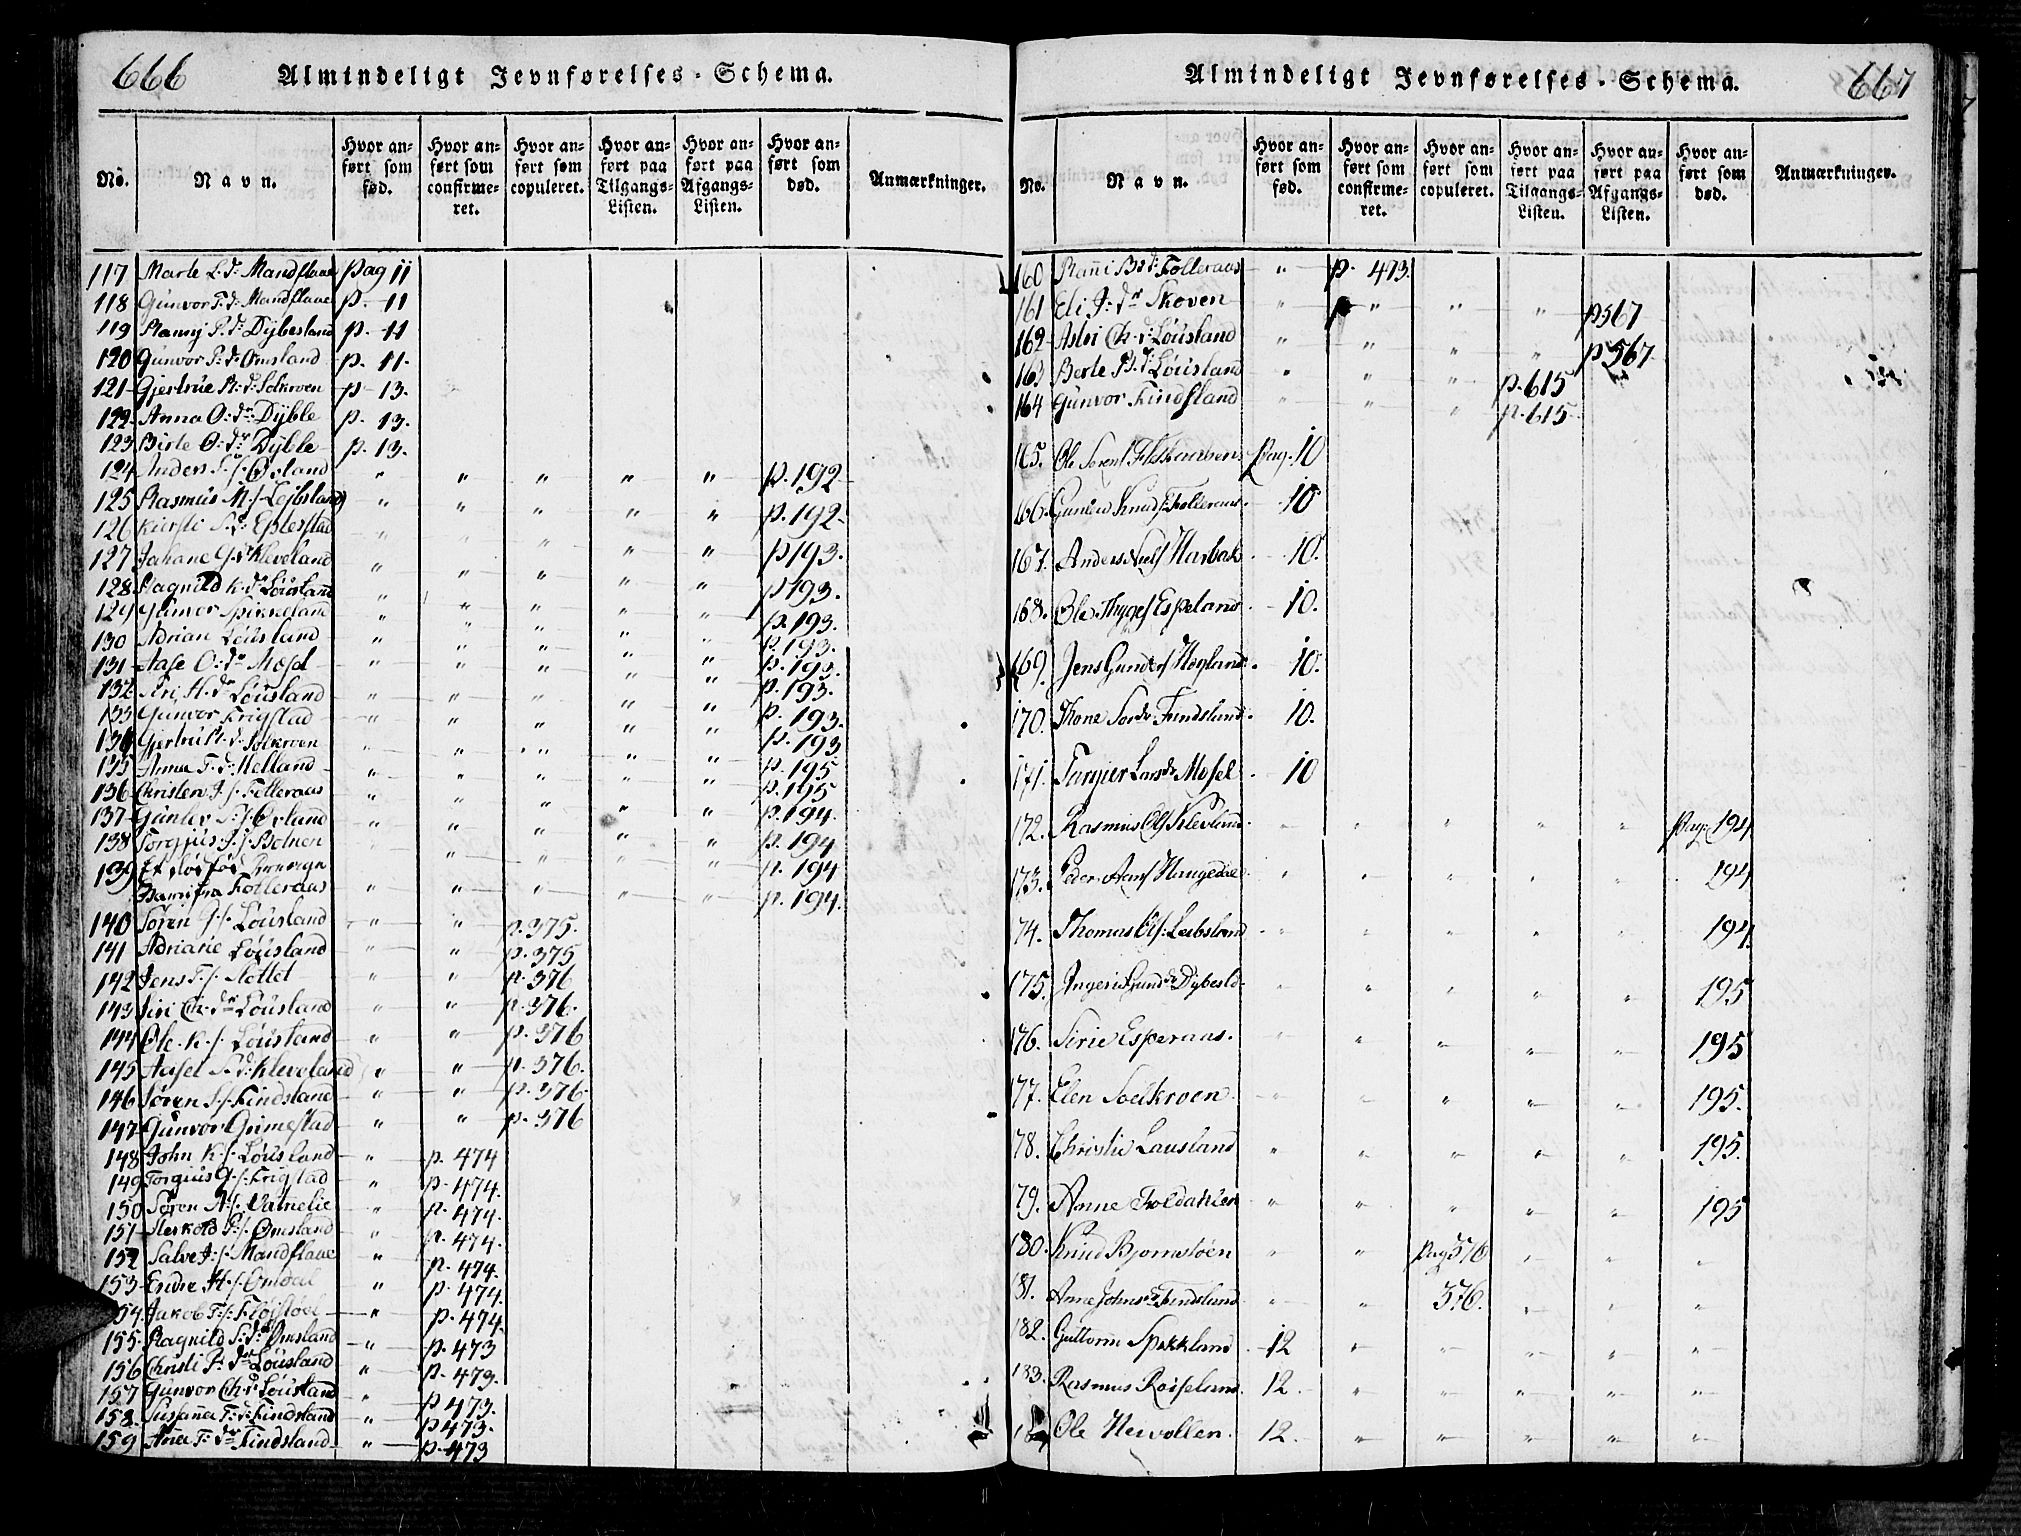 666
Almindeligt Jevnførelses-Schema.
No. Navn. Hvor anført som fød. Hvor anført som confirmeret. Hvor anført som copuleret. Hvor anført paa Tilgangs-Listen. Hvor anført paa Afgangs-Listen. Hvor anført som død. Anmærkninger.
117 Marte L:d: Mandflaae Pag 11
118 Gunvor T:d: Mandflaae p. 11
119 P:d: Dybesland p. 11
120 Gunvor P:dr Omsland p. 11.
121 Gjertrue R:d: Solkroen p 13.
122 Anna O:dr Dyble p. 13.
123 Birte O:dr Dyble p. 13.
124 Anders S:/: Øsland " " " " " p. 192
125 Rasmus M:/: Lejbsland " " " " " p. 192
126 Kirsti S:d: Eplestad " " " " " p 193.
127 Johane G:dr Kleveland " " " " " p 193.
128 Ragnild K:dr Løusland " " " " " p. 193.
129 Gunvor " " " " " p. 193.
130 Adrian Løusland " " " " " p. 193.
131 Aase O:dr Mosel " " " " " p. 193.
132 Siri H:dr Løusland " " " " " p. 193.
133 Gunvor Frigstad " " " " " p. 193
134 Gjertru R:d: Solkroen " " " " " p. 195
135 Anna T:d: Melland " " " " " p. 195
136 Christen J:/: Folleraas " " " " " p. 194.
137 Gunlev S:/: Ørland " " " " " p. 194
138 Torgius J:/: Bolnen " " " " " p. 194
139 Et
Barn fra Folleraas " " " " " p. 194.
140 Søren J:/: Løusland " " p. 375.
141 Adriane Løusland " " p. 375
142 Jens T:/: Slottet " " p. 376
143 Siri Ch:dr Løusland " " p. 376.
144 Ole K:/: Løusland " " p. 376
145 Aasel S:d: Kleveland " " p. 376.
146 Søren S:/: Findsland " " p. 376.
147 Gunvor Grimestad " " p. 376
148 John K:/: Løusland " p. 474
149 Torgius G:/: Frigstad " p. 474.
150 Søren A:/: Vatnelie " p. 474.
151 Sterkold P:/: Omsland " p. 474.
152 Salve J:/: Mandflaae " p. 474.
153 Endre H:/: Omdal " p. 474.
154 Jakob T:/: Fløistøel " p. 474.
155 Ragnild S:dr Omsland " p. 473
156 Christi P:dr Løusland " p. 473.
157 Gunvor Ch:d: Løusland " p 473.
158 Susanna T:d: Findsland " p 473.
159 Anna T:dr Findsland " p. 473
Almindeligt Jevnførelses-Schema.
667
No. Navn. Hvor anført som fød. Hvor anført som confirmeret. Hvor anført som copuleret. Hvor anført paa Tilgangs-Listen. Hvor anført paa Afgangs-Listen. Hvor anført som død. Anmærkninger.
160 Ranni B:d: Folleraas " p. 473.
161 Eli J:dr Skoven " " " " p 567
162 Astri Ch:d: Løusland " " " " p 567.
163 Berte P:d: Løusland " " " p. 615
164 Gunvor Findsland " " " p. 615.
165. Ole Pag. 10
166. Gunlev Knuds Folleraas 10
167. Anders Niels Harbak 10.
168. Ole Thyges Espeland 10.
169. Jens Gunders Høyland 10.
170. Thone Findsland 10.
171. Targier Larsdr Mosel 10
172. Rasmus Ols Kleveland " " " " " Pag. 194
173. Peder Aans Haugedal " " " " " 194
174. Thomas Ols: Leibsland " " " " " 194.
175. Ingeri Gundr Dybesld " " " " " 195
176. Sirie Esperaas. " " " " " 195
177. Elen Solkroen " " " " " 195.
178. Christie Lausland " " " " " 195.
179. Anne Foldahlen " " " " " 195
180. Knud Bjornstøen " " Pag 376 " " "
181. Anne Johnsdr Findsland " " 376. " " "
182. Guttorm Spikkland 12 " " " " "
183. Rasmus Roiseland. 12. " " " " "
184 Ole Nevollen. 12. " " " " "